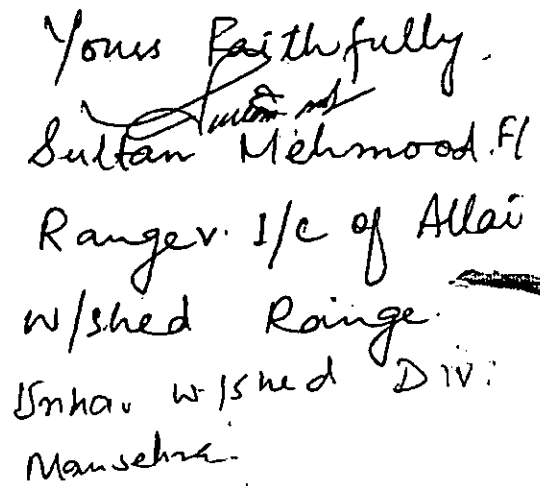 Yours Faithfully.
Sultan Mehmood. F/
Ranger. I/c of Allai
W/shed Range.
W/shed Div:
Mansehra.